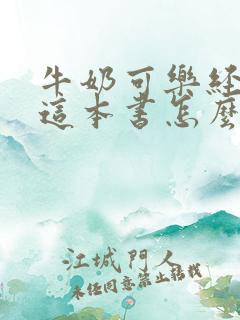 牛奶可樂經
這本書怎麼
江城門人
未經同意禁止轉載